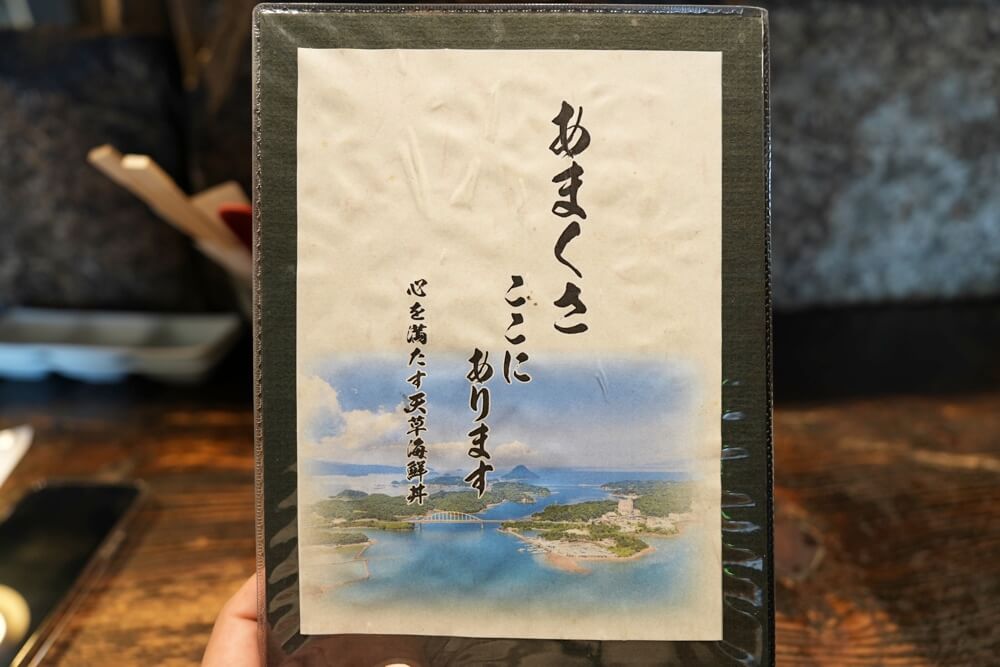 あまくさ
ここに
あります
心を満たす天草海鮮丼